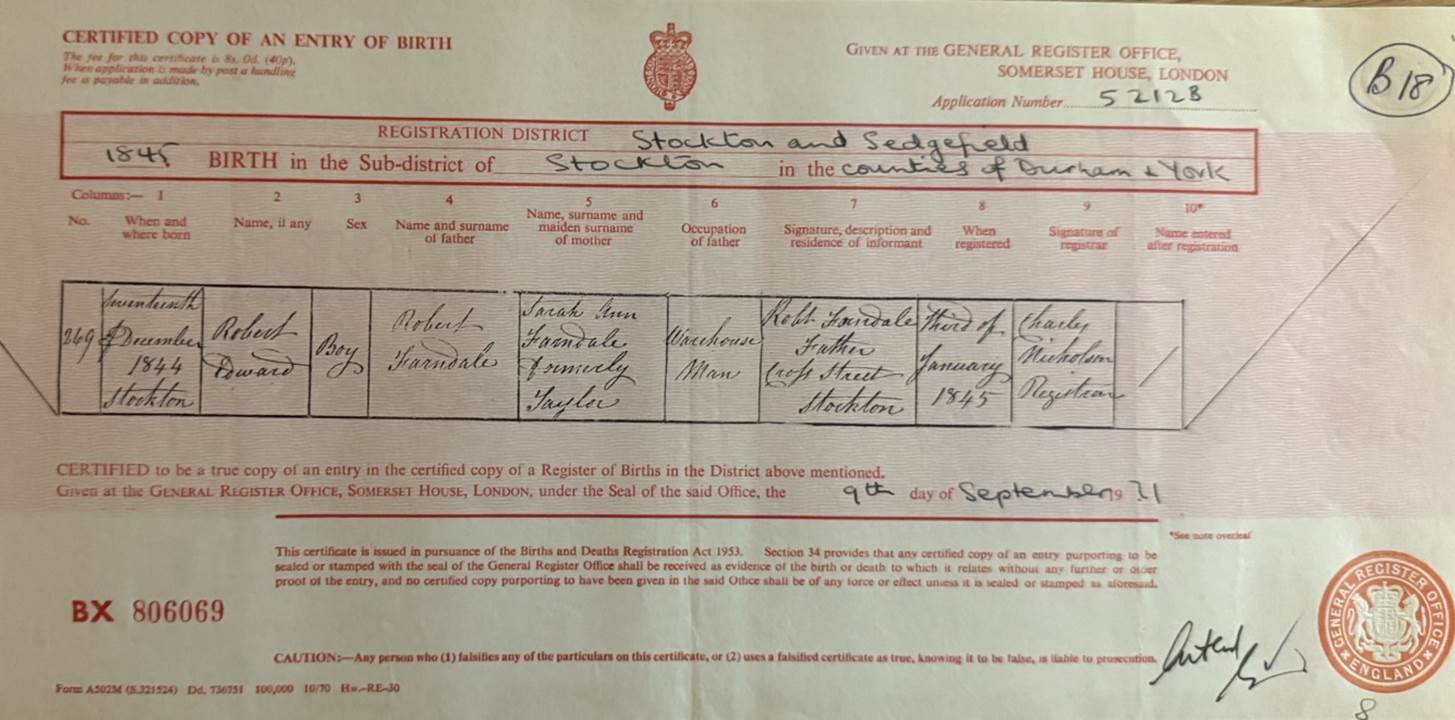 CERTIFIED COPY OF AN ENTRY OF BIRTH
The fee for this certificate is 8s. 0d. (40p).
When application is made by post a handling
fee is payable in addition.
GIVEN AT THE GENERAL REGISTER OFFICE,
SOMERSET HOUSE, LONDON
Application Number 5212B
B18
REGISTRATION DISTRICT Stockton and Sedgefield
1845 BIRTH in the Sub-district of Stockton in the counties of Durham & York
Columns:— 1 2 3 4 5 6 7 8 9 10*
No. When and where born Name, if any Sex Name and surname of father Name, surname and maiden surname of mother Occupation of father Signature, description and residence of informant When registered Signature of registrar Name entered after registration
269
Seventeenth
of December
1844
Stockton
Robert
Edward
Boy
Robert
Farndale
Sarah Ann
Farndale
formerly
Taylor
Warehouse
Man
Robt Farndale
Father
Cross Street
Stockton
Third of
January
1845
Charles
Nicholson
Registrar
CERTIFIED to be a true copy of an entry in the certified copy of a Register of Births in the District above mentioned.
Given at the GENERAL REGISTER OFFICE, SOMERSET HOUSE, LONDON, under the Seal of the said Office, the 9th day of September 19 71
*See note overleaf
This certificate is issued in pursuance of the Births and Deaths Registration Act 1953. Section 34 provides that any certified copy of an entry purporting to be
sealed or stamped with the seal of the General Register Office shall be received as evidence of the birth or death to which it relates without any further or other
proof of the entry, and no certified copy purporting to have been given in the said Office shall be of any force or effect unless it is sealed or stamped as aforesaid.
BX 806069
CAUTION:—Any person who (1) falsifies any of the particulars on this certificate, or (2) uses a falsified certificate as true, knowing it to be false, is liable to prosecution.
GENERAL REGISTER OFFICE ENGLAND
Form A502M (S.321524) Dd. 736751 100,000 10/70 Hw.-RE-30
8